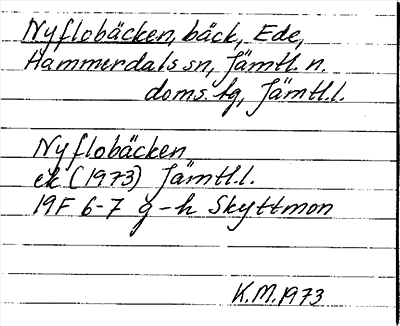 Nyflobäcken, bäck, Ede,
Hammerdals sn, Jämtl. n.
doms. tg, Jämtl. l.
Nyflobäcken
ek (1973) Jämtl. l.
19F 6-7 g-h Skyttmon
K.M. 1973